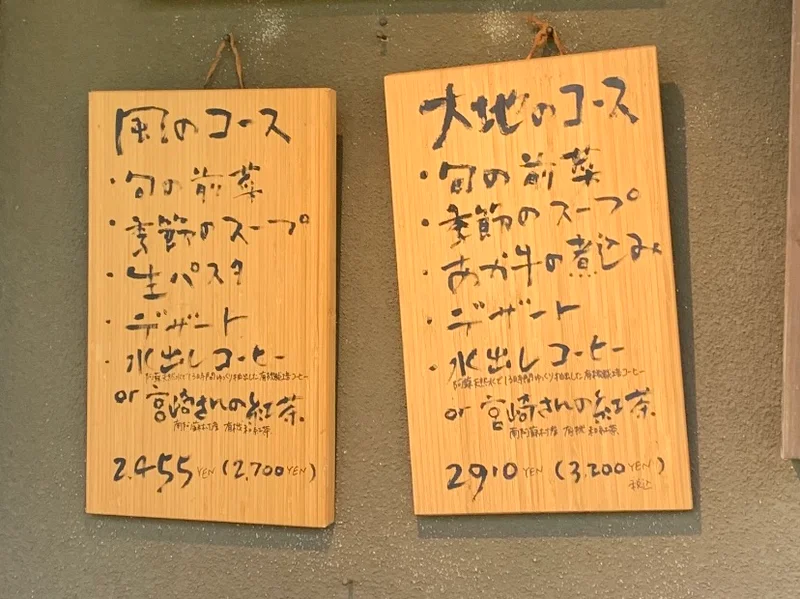 風のコース
・旬の前菜
・季節のスープ
・生パスタ
・デザート
・水出しコーヒー
or 宮崎さんの紅茶
南阿蘇村産 有機 和紅茶
2.455 YEN (2.700 YEN)
大地のコース
・旬の前菜
・季節のスープ
・あか牛の煮込み
・デザート
・水出しコーヒー
or 宮崎さんの紅茶
南阿蘇村産 有機 和紅茶
2910 YEN (3.200 YEN)
税込